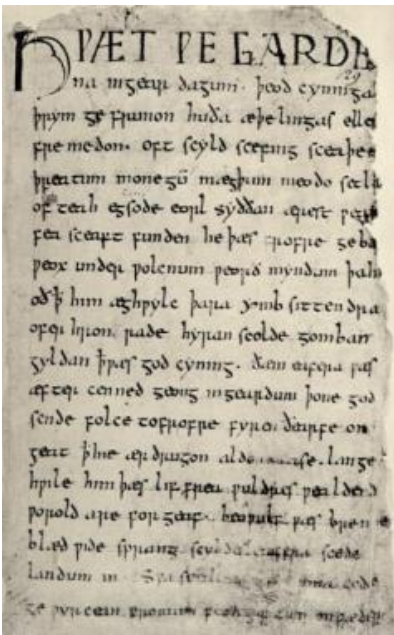 HǷÆT ǷE GARDE
na ingear dagum. þeod cyninga
þrym ge frunon huða æþelingas elle
fre medon. oft scyld scefing sceaþe
þreatum monegū mægþum meodo setla
of teah egsode eorl syððan ærest
fea sceaft funden he þæs frofre geba
ƿeox under ƿolcnum ƿeorð myndum þah
oð ꝥ him æghƿylc þara ymb sittendra
ofer hron rade hyran scolde gomban
gyldan ꝥ ƿæs god cyning. ðæm eafera ƿæs
æfter cenned geong ingeardum þone god
sende folce tofrofre fyren ðearfe on
geat ꝥ hie ær drugon aldor ase. lange
hƿile him þæs lif frea ƿuldres ƿealdend
ƿorold are for geaf. beoƿulf ƿæs breme
blæd ƿide sprang scyldes eafera scede
landum in. Sƿa uma gode
ge ƿyrcean fromum